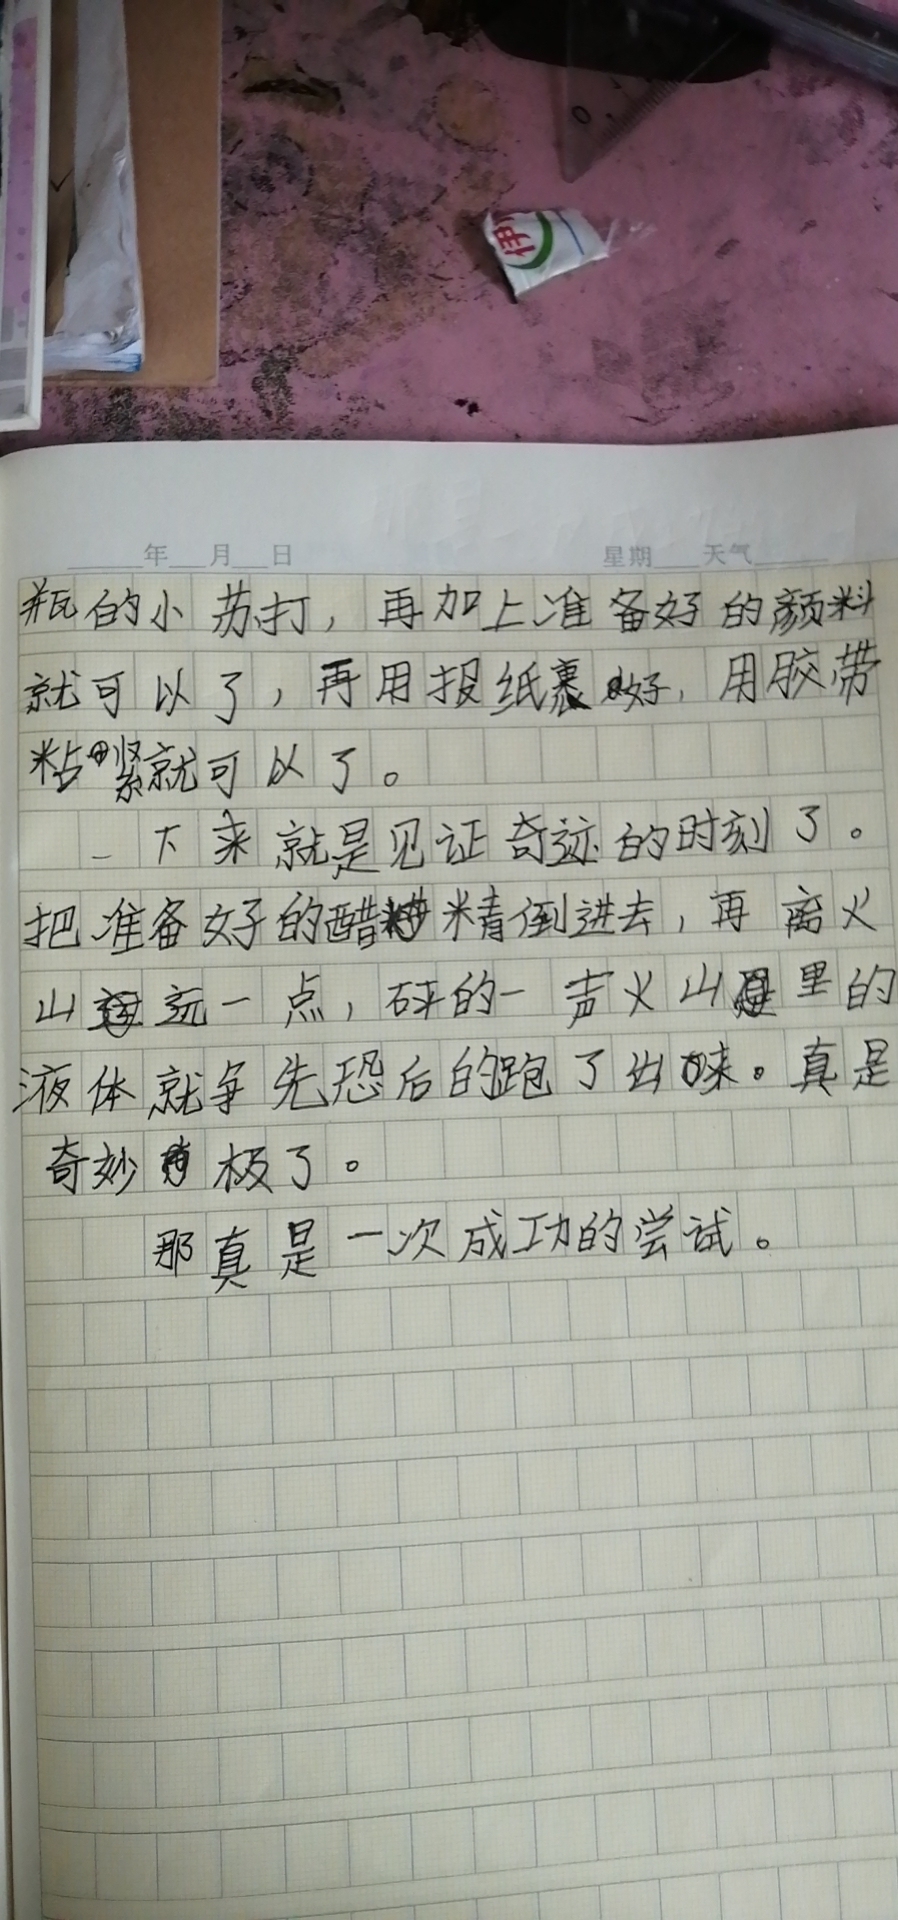 伊利
0 1
年 月 日 星期 天气
瓶的小苏打，再加上准备好的颜料
就可以了，再用报纸裹好，用胶带
粘紧就可以了。
一下来就是见证奇迹的时刻了。
把准备好的醋精倒进去，再离火
山远一点，砰的一声火山里的
液体就争先恐后的跑了出来。真是
奇妙极了。
那真是一次成功的尝试。